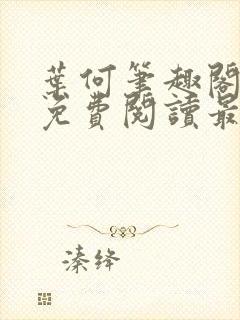 葉何筆趣閣
免費閱讀最
溱绛